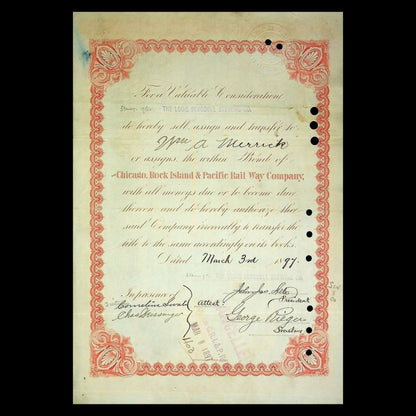 For a Valuable Consideration
THE LOUIS
do hereby sell, assign and transfer to
Wm A Merrick
or assigns, the within Bond of
Chicago, Rock Island & Pacific Rail Way Company,
with all moneys due or to become due
thereon, and do hereby authorize the
said Company irrevocably to transfer the
title to the same accordingly on its books.
Dated March 3rd 1897.
In presence of
Attest
President
George Rieger
Secretary